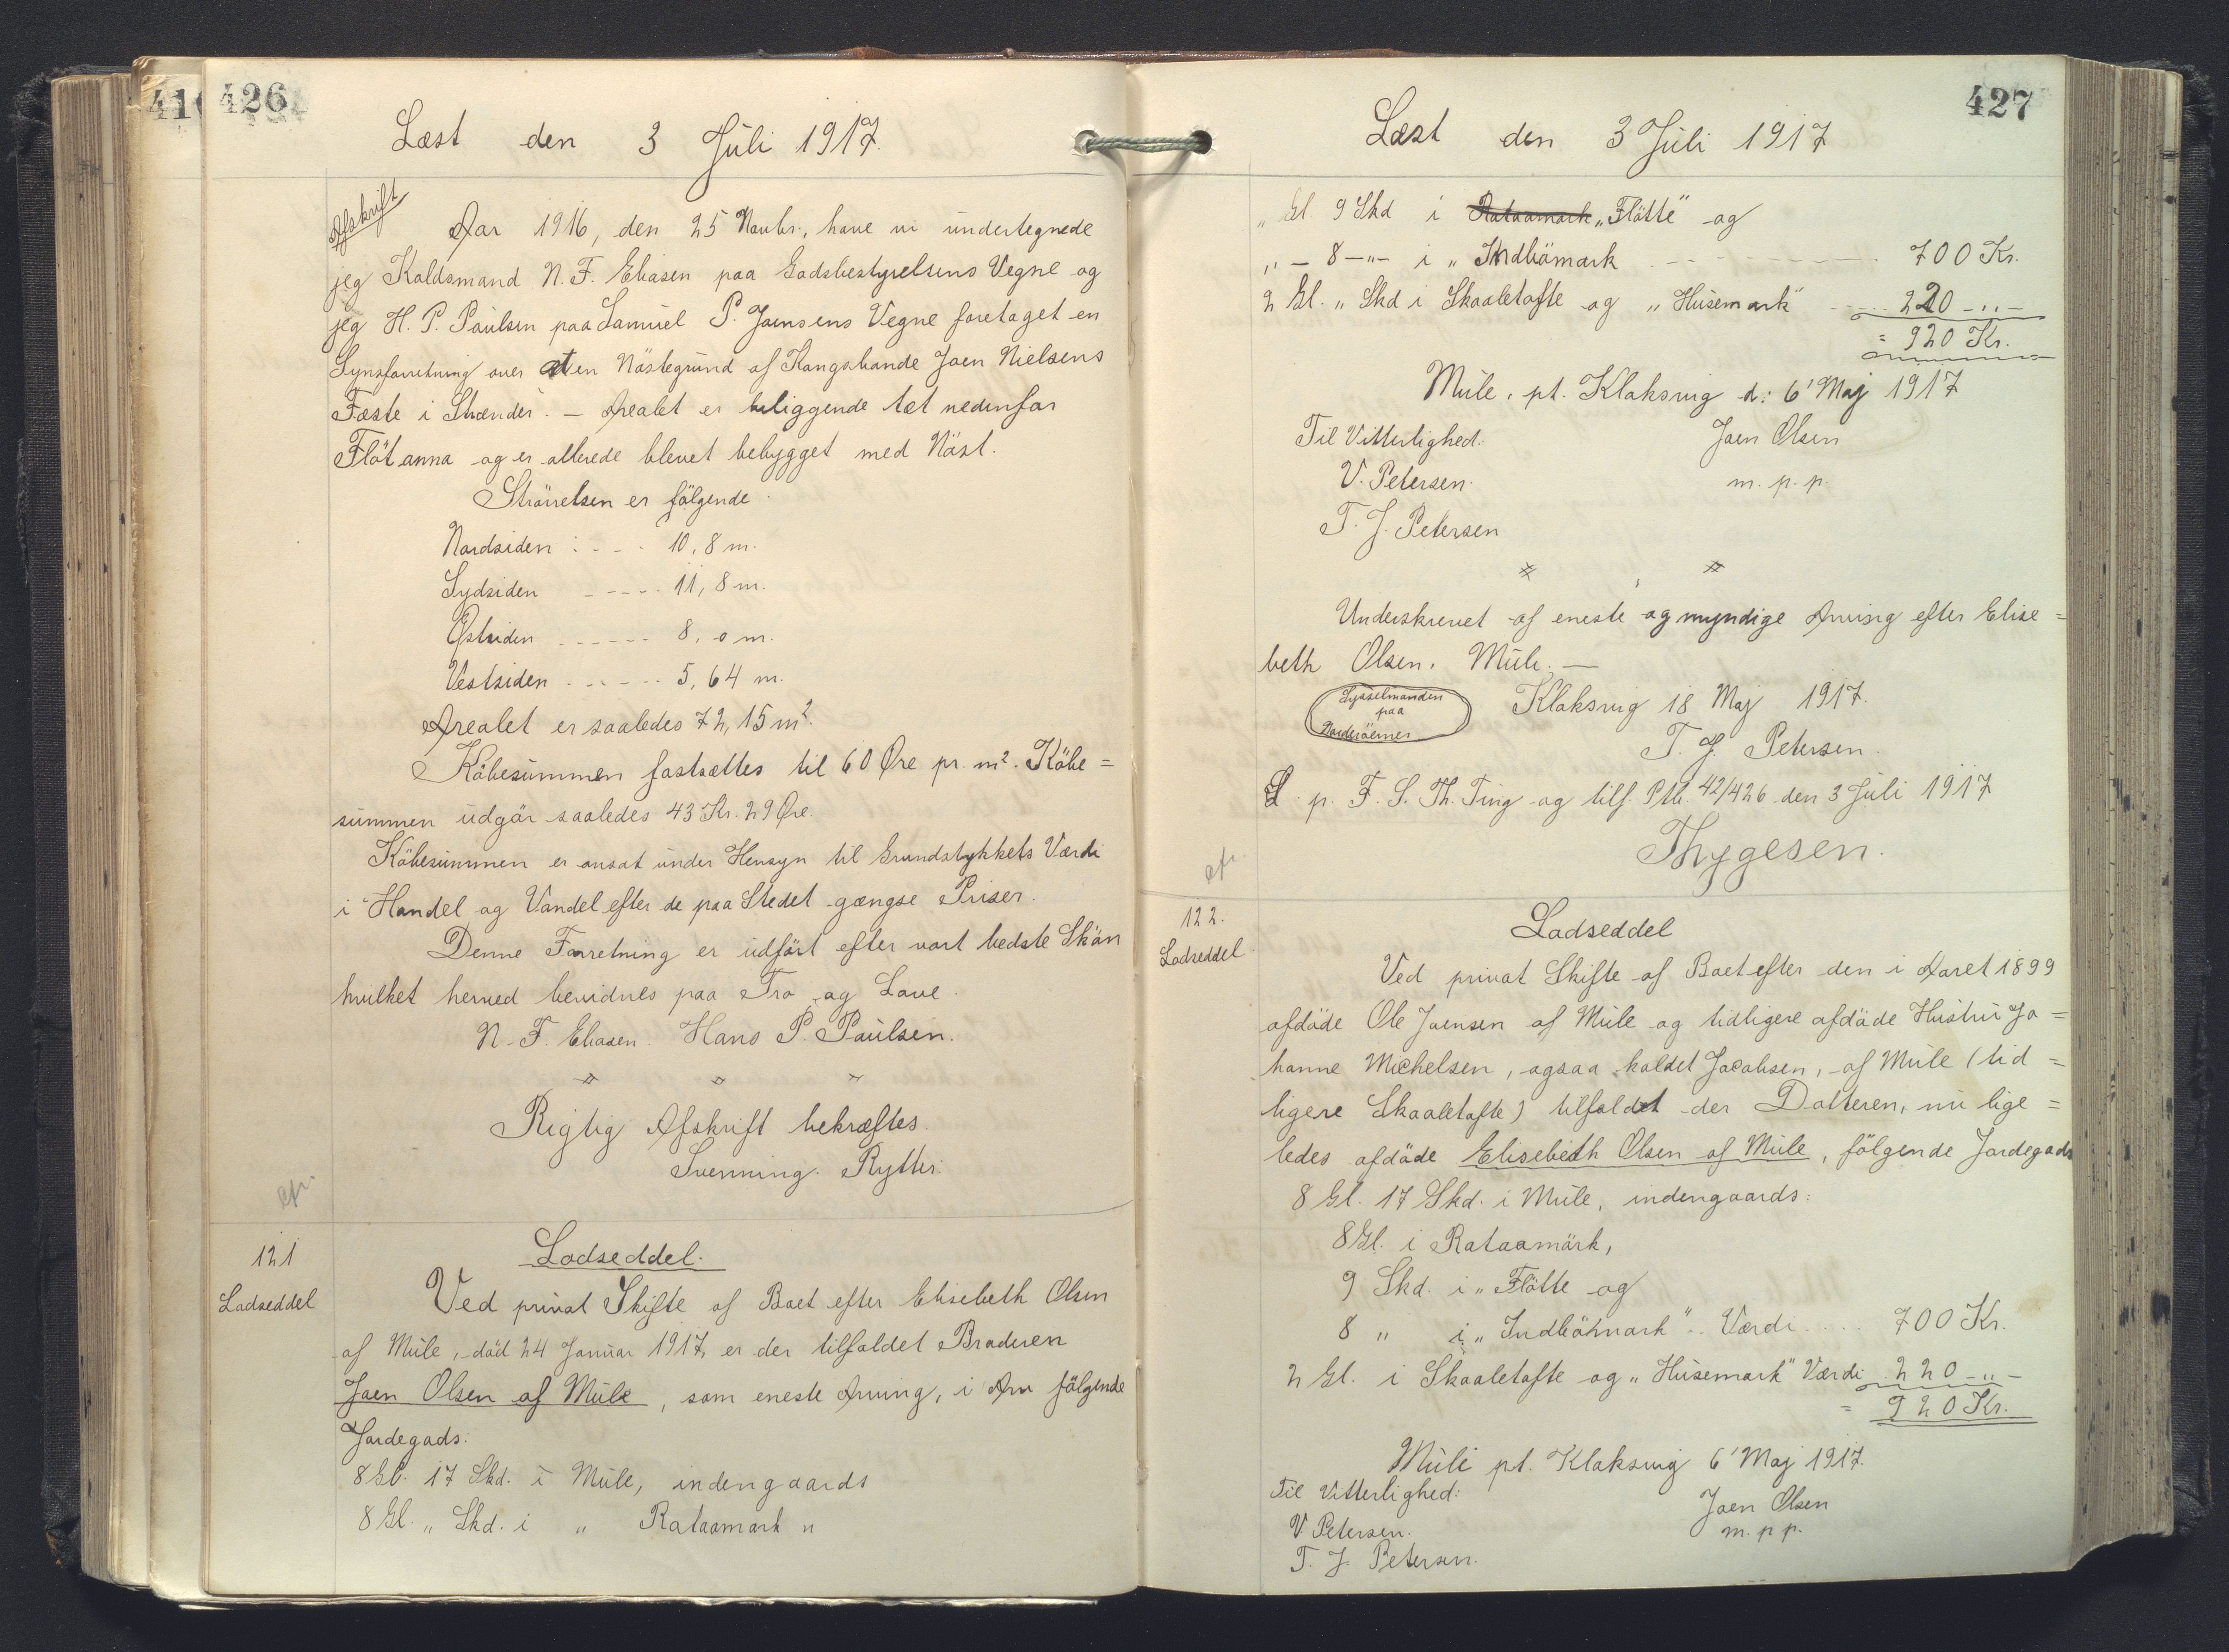 416
426
Læst den 3 Juli 1917.
Afskrift
Aar 1916, den 25 Novbr., have vi undertegnede
jeg Kaldsmand N. F. Eliasen paa Godsbestyrelsens Vegne og
jeg H. P. Paulsen paa Samuel P. Joensens Vegne foretaget en
Synsforretning over en Nöstegrund af Kongsbonde Joen Nielsens
Fæste i Strænder. — Arealet er beliggende tæt nedenfor
Flötanna og er allerede blevet bebygget med Nöst.
Störrelsen er fölgende
Nordsiden : - - - 10,8 m.
Sydsiden - - - - - 11,8 m.
Østsiden - - - - - 8,0 m.
Vestsiden - - - - - 5,64 m.
Arealet er saaledes 72,15 m².
Köbesummen fastsættes til 60 Øre pr. m². Köbe=
summen udgör saaledes 43 Kr. 29 Øre.
Köbesummen er ansat under Hensyn til Grundstykkets Værdi
i Handel og Vandel efter de paa Stedet gængse Priser.
Denne Forretning er udfört efter vort bedste Skön
hvilket herved bevidnes paa Tro og Love.
N. F. Eliasen. Hans P. Paulsen.
Rigtig Afskrift bekræftes.
Svenning Rytter.
cfr.
121
Lodseddel
Lodseddel.
Ved privat Skifte af Boet efter Elisebeth Olsen
af Mule, död 24 Januar 1917, er der tilfaldet Broderen
Joen Olsen af Mule, som eneste Arving, i Arv fölgende
Jordegods:
8 Gl. 17 Skd. i Mule, indengaards
8 Gl. „ Skd. i „ Rataamark „
427
Læst den 3 Juli 1917
„ Gl. 9 Skd i Rataamark „Flötte" og
„ — 8 —„— i „ Indbömark - - - - - - - 700 Kr.
2 Gl. „ Skd i Skaaletofte og „ Husemark" - - - 220 -„-
= 920 Kr.
Mule, pt. Klaksvig d: 6' Maj 1917
Til Vitterlighed. Joen Olsen
V. Petersen. m. p. p.
T. J. Petersen
Underskrevet af eneste og myndige Arving efter Elise=
beth Olsen, Mule. —
Sysselmanden
paa
Norderöerne
Klaksvig 18 Maj 1917.
T. J. Petersen.
L. p. F. S. Th. Ting og tilf. Ptb. 42/426 den 3 Juli 1917
Thygesen.
cfr.
122.
Lodseddel
Lodseddel
Ved privat Skifte af Boet efter den i Aaret 1899
afdöde Ole Joensen af Mule og tidligere afdöde Hustru Jo=
hanne Michelsen, ogsaa kaldet Jacobsen, af Mule (tid=
ligere Skaaletofte) tilfaldet der Datteren, nu lige=
ledes afdöde Elisebeth Olsen af Mule, fölgende Jordegods
8 Gl. 17 Skd. i Mule, indengaards:
8 Gl. i Rataamörk,
9 Skd. i „ Flötte og
8 „ i „ Indbömark" .. Værdi .... 700 Kr.
2 Gl. i Skaaletofte og „ Husemark" Værdi 220 -„-
= 920 Kr.
Muli pt. Klaksvig 6' Maj 1917.
Til Vitterlighed: Joen Olsen
V. Petersen. m. p p.
T. J. Petersen.